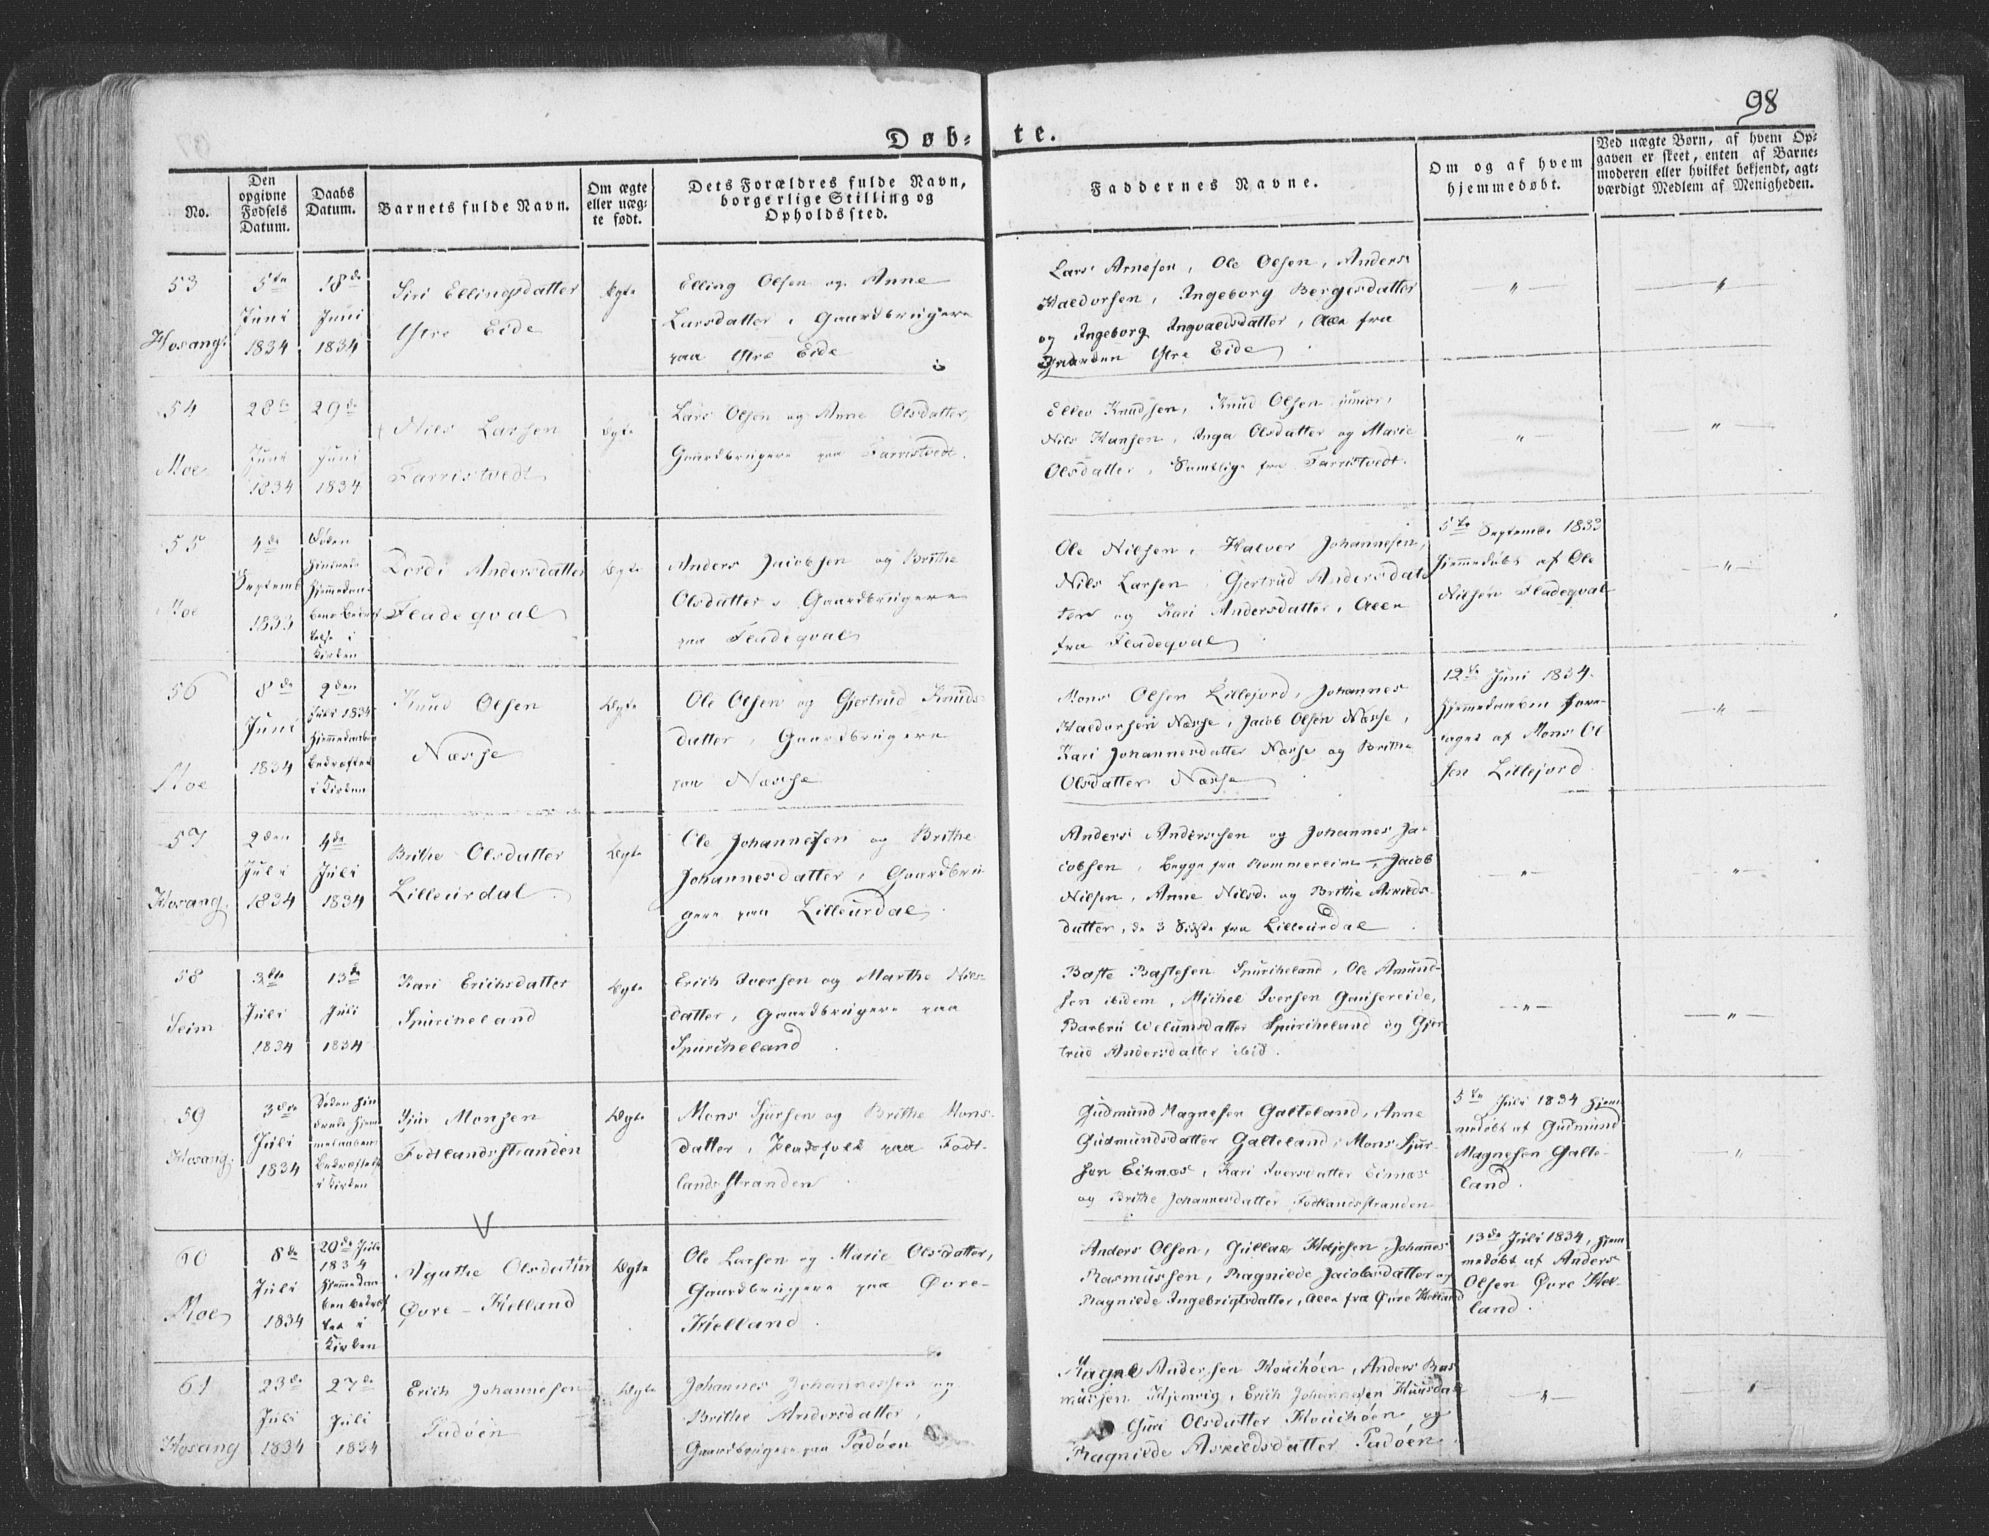 98
Døb-te.
No.
Den opgivne Fødsels Datum.
Daabs Datum.
Barnets fulde Navn.
Om ægte eller uægte født.
Dets Forældres fulde Navn, borgerlige Stilling og Opholdssted.
Faddernes Navne.
Om og af hvem hjemmedøbt.
Ved uægte Børn, af hvem Opgaven er skeet, enten af Barnemoderen eller hvilket bekjendt, agtværdigt Medlem af Menigheden.
53
Hosang.
5te
Juni
1834
18de
Juni
1834
Siri Ellingsdatter
Ytre Eide
Ægte
Elling Olsen og Anne
Larsdatter, Gaardbrugere
paa Ytre Eide
Lars Arnesen, Ole Olsen, Anders
Haldorsen, Ingeborg Bergesdatter
og Ingeborg Ingvaldsdatter, Alle fra
Gaarden Ytre Eide
54
Moe
28de
Juni
1834
29de
Juni
1834
Nils Larsen
Farristvedt
Ægte
Lars Olsen og Anne Olsdatter,
Gaardbrugere paa Farristvedt.
Ellev Knudsen, Knud Olsen junior,
Nils Hansen, Inga Olsdatter og Marie
Olsdatter, Samtlige fra Farristvedt.
55
Moe
4de
Septemb
1833
Lordi Andersdatter
Fladeqval
Ægte
Anders Jacobsen og Brithe
Olsdatter, Gaardbrugere
paa Fladeqval
Ole Nilsen, Halver Johannesen,
Nils Larsen, Gjertrud Andersdat
ter og Kari Andersdatter, Alle
fra Fladeqval
5te September 1833
hjemmedøbt af Ole
Nilsen Fladeqval
56
Moe
8de
Juni
1834
2den
Juli 1834
Hjemmedaaben
bekræftet
i Kirken
Knud Olsen
Næsse
Ægte
Ole Olsen og Gjertrud Knuds-
datter, Gaardbrugere
paa Næsse
Mons Olsen Lillejord, Johannes
Haldorsen Næsse, Jacob Olsen Næsse,
Kari Johannesdatter Næsse og Brithe
Olsdatter Næsse
12te Juni 1834.
Hjemmedaaben fore-
taget af Mons Ol
sen Lillejord
57
Hosang.
2den
Juli
1834
4de
Juli
1834
Brithe Olsdatter
Lilleurdal
Ægte
Ole Johannesen og Brithe
Johannesdatter, Gaardbru
gere paa Lilleurdal
Anders Andersen og Johannes Ja-
cobsen, begge fra Rommereim, Jacob
Nilsen, Anne Nilsd. og Brithe Askilds-
datter, de 3 Sidste fra Lilleurdal
58
Seim
3die
Juli
1834
13de
Juli
1834
Kari Erichsdatter
Spurcheland
Ægte
Erich Iversen og Marthe Nils-
datter, Gaardbrugere paa
Spurcheland
Baste Bastesen Spurcheland, Ole Amund-
sen ibidem, Michel Iversen Gausereide,
Barbru Welumsdatter Spurcheland og Gjer
trud Andersdatter ibid.
59
Hosang.
3die
Juli
1834
Sjur Monsen
Fodtlandsstranden
Ægte
Mons Sjursen og Brithe Mons-
datter, Pladsfolk paa Fodt-
landsstranden
Gudmund Magnesen Galteland, Anne
Gudmundsdatter Galteland, Mons Sjur-
sen Eitnæs, Kari Iversdatter Eitnæs
og Brithe Johannesdatter Fodtlandsstranden
5te Juli 1834 hjem
medøbt af Gudmund
Magnesen Galte-
land.
60
Moe
8de
Juli
1834
20de Juli
1834
Hjemmedaa-
ben bekræf
tet i
Kirken
Agathe Olsdatter
Øvre-Helland
Ægte
Ole Larsen og Marie Olsdatter,
Gaardbrugere paa Øvre-
Helland.
Anders Olsen, Gullak Heljesen, Johannes
Rasmussen, Ragnilde Jacobsdatter og
Ragnilde Ingebrigtsdatter, Alle fra Øvre Helland
13de Juli 1834, hjem
medøbt af Anders
Olsen Øvre Hel-
land.
61
Hosang
23de
Juli
1834
27de
Juli
1834
Erich Johannesen
Tadøen
Ægte
Johannes Johannessen og
Brithe Andersdatter,
Gaardbrugere paa Tadøen
Magne Andersen Houchøen, Anders Ras
mussen Hjemvig, Erich Johannesen Huusdal
Guri Olsdatter Houchøen, og
Ragnilde Askildsdatter Tadøen